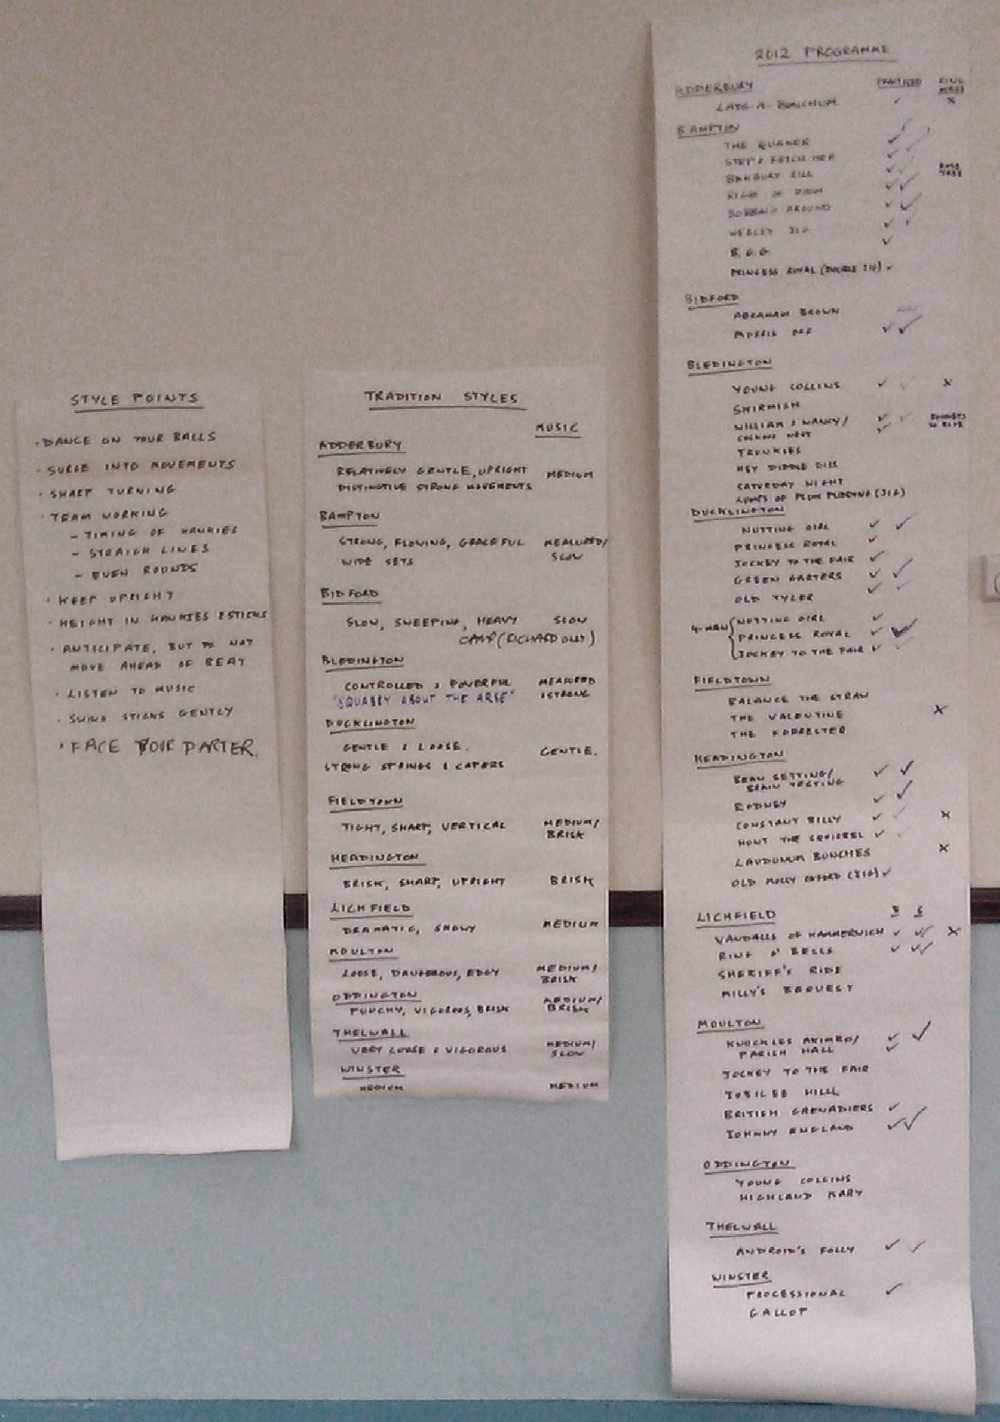 STYLE POINTS
• DANCE ON YOUR BALLS
• SURGE INTO MOVEMENTS
• SHARP TURNING
• TEAM WORKING
- TIMING OF HANKIES
- STRAIGH LINES
- EVEN ROUNDS
• KEEP UPRIGHT
• HEIGHT IN HANKIES & STICKS
• ANTICIPATE, BUT DO NOT
MOVE AHEAD OF BEAT
• LISTEN TO MUSIC
• SWING STICKS GENTLY
• FACE YOUR PARTER.
TRADITION STYLES
MUSIC
ADDERBURY
RELATIVELY GENTLE, UPRIGHT MEDIUM
DISTINCTIVE STRONG MOVEMENTS
BAMPTON
STRONG, FLOWING, GRACEFUL MEASURED/
WIDE SETS SLOW
BIDFORD
SLOW, SWEEPING, HEAVY SLOW
(RICHARD ONLY)
BLEDINGTON
CONTROLLED & POWERFUL MEASURED
"SQUABBY ABOUT THE ARSE" & STRONG
DUCKLINGTON
GENTLE & LOOSE. GENTLE.
STRONG SPRINGS & CAPERS
FIELDTOWN
TIGHT, SHARP, VERTICAL MEDIUM/
BRISK
HEADINGTON
BRISK, SHARP, UPRIGHT BRISK
LICHFIELD
DRAMATIC, SHOWY MEDIUM
MOULTON
LOOSE, DANGEROUS, EDGY MEDIUM/
BRISK
ODDINGTON
PUNCHY, VIGOROUS, BRISK MEDIUM/
BRISK
THELWALL
VERY LOOSE & VIGOROUS MEDIUM/
SLOW
WINSTER
MEDIUM MEDIUM
2012 PROGRAMME
ADDERBURY PRACTISED
LADS A BUNCHUM ✓ X
BAMPTON
THE QUAKER ✓ ✓
STEP & FETCH HER ✓ ✓
BANBURY BILL ✓ ✓
ROSE TREE
BOBBING AROUND ✓ ✓
WEBLEY JIG ✓ ✓
B.G.G ✓
PRINCESS ROYAL (DOUBLE JIG) ✓
BIDFORD
ABRAHAM BROWN
MORRIS OFF ✓ ✓
BLEDINGTON
YOUNG COLLINS ✓ ✓ X
SKIRMISH
WILLIAM & NANCY/ ✓ ✓
CUCKOOS NEST ✓
TRUNKIES
HEY DIDDLE DISS
SATURDAY NIGHT
LUMPS OF PLUM PUDDING (JIG)
DUCKLINGTON
NUTTING GIRL ✓ ✓
PRINCESS ROYAL ✓
JOCKEY TO THE FAIR ✓
GREEN GARTERS ✓ ✓
OLD TYLER ✓ ✓
NUTTING GIRL ✓
4-MAN { PRINCESS ROYAL ✓ ✓
JOCKEY TO THE FAIR ✓ ✓
FIELDTOWN
BALANCE THE STRAW
THE VALENTINE X
THE FORRESTER
HEADINGTON
BEAN SETTING/ ✓ ✓
BRAIN TESTING
RODNEY ✓ ✓
CONSTANT BILLY ✓ ✓ X
HUNT THE SQUIRREL ✓ ✓
LAUDUNUM BUNCHES X
OLD MOLLY OXFORD (JIG) ✓
LICHFIELD
VANDALLS OF HAMMERWICH ✓ ✓✓ X
RING O' BELLS ✓ ✓✓
SHERIFF'S RIDE
MILLY'S BEQUEST
MOULTON
KNUCKLES AKIMBO/ ✓ ✓
PARISH HALL ✓
JOCKEY TO THE FAIR
JUBILEE HILL
BRITISH GRENADIERS ✓
JOHNNY ENGLAND ✓ ✓
ODDINGTON
YOUNG COLLINS
HIGHLAND MARY
THELWALL
ANDROID'S FOLLY ✓ ✓
WINSTER
PROCESSIONAL ✓
GALLOP